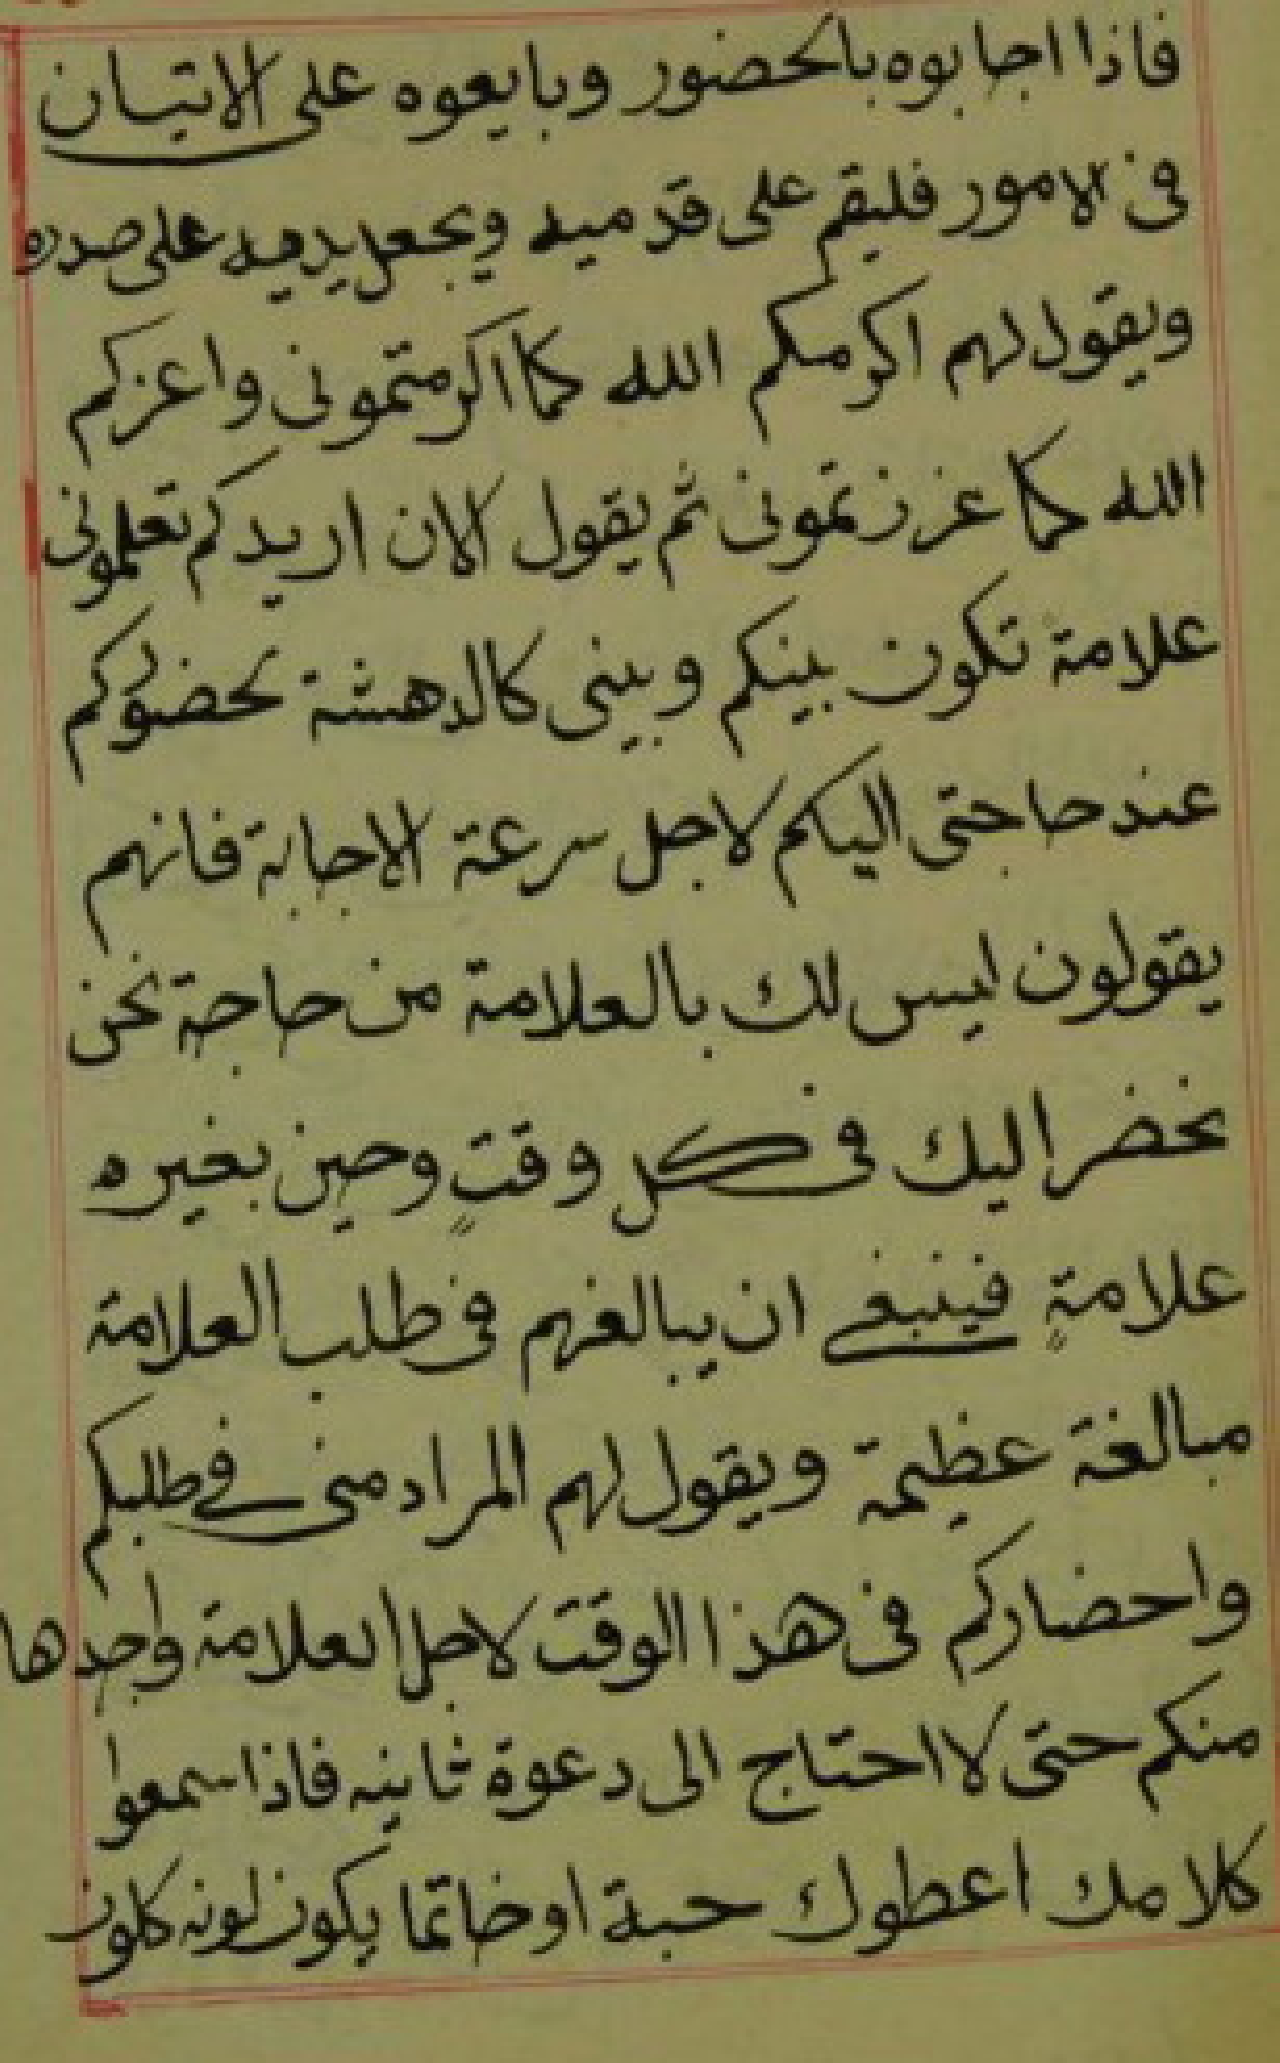 فاذا اجابوه بالحضور وبايعوه على الاتيان
فى الامور فليقم على قدميه ويجعل يديه على صدره
ويقول لهم اكرمكم الله كما اكرمتمونى واعزكم
الله كما عززتمونى ثم يقول الان اريدكم تعلمونى
علامة تكون بينكم وبينى كالدهشة بحضوركم
عند حاجتى اليكم لاجل سرعة الاجابة فانهم
يقولون ليس لك بالعلامة من حاجة نحن
نحضر اليك فى كل وقتٍ وحين بغيره
علامةٍ فينبغى ان يبالغهم فى طلب العلامة
مبالغة عظيمة ويقول لهم المراد منى فى طلبكم
واحضاركم فى هذا الوقت لاجل العلامة واجدها
منكم حتى لا احتاج الى دعوة ثانيه فاذا سمعوا
كلامك اعطوك حبة او خاتما يكون لونه كلون